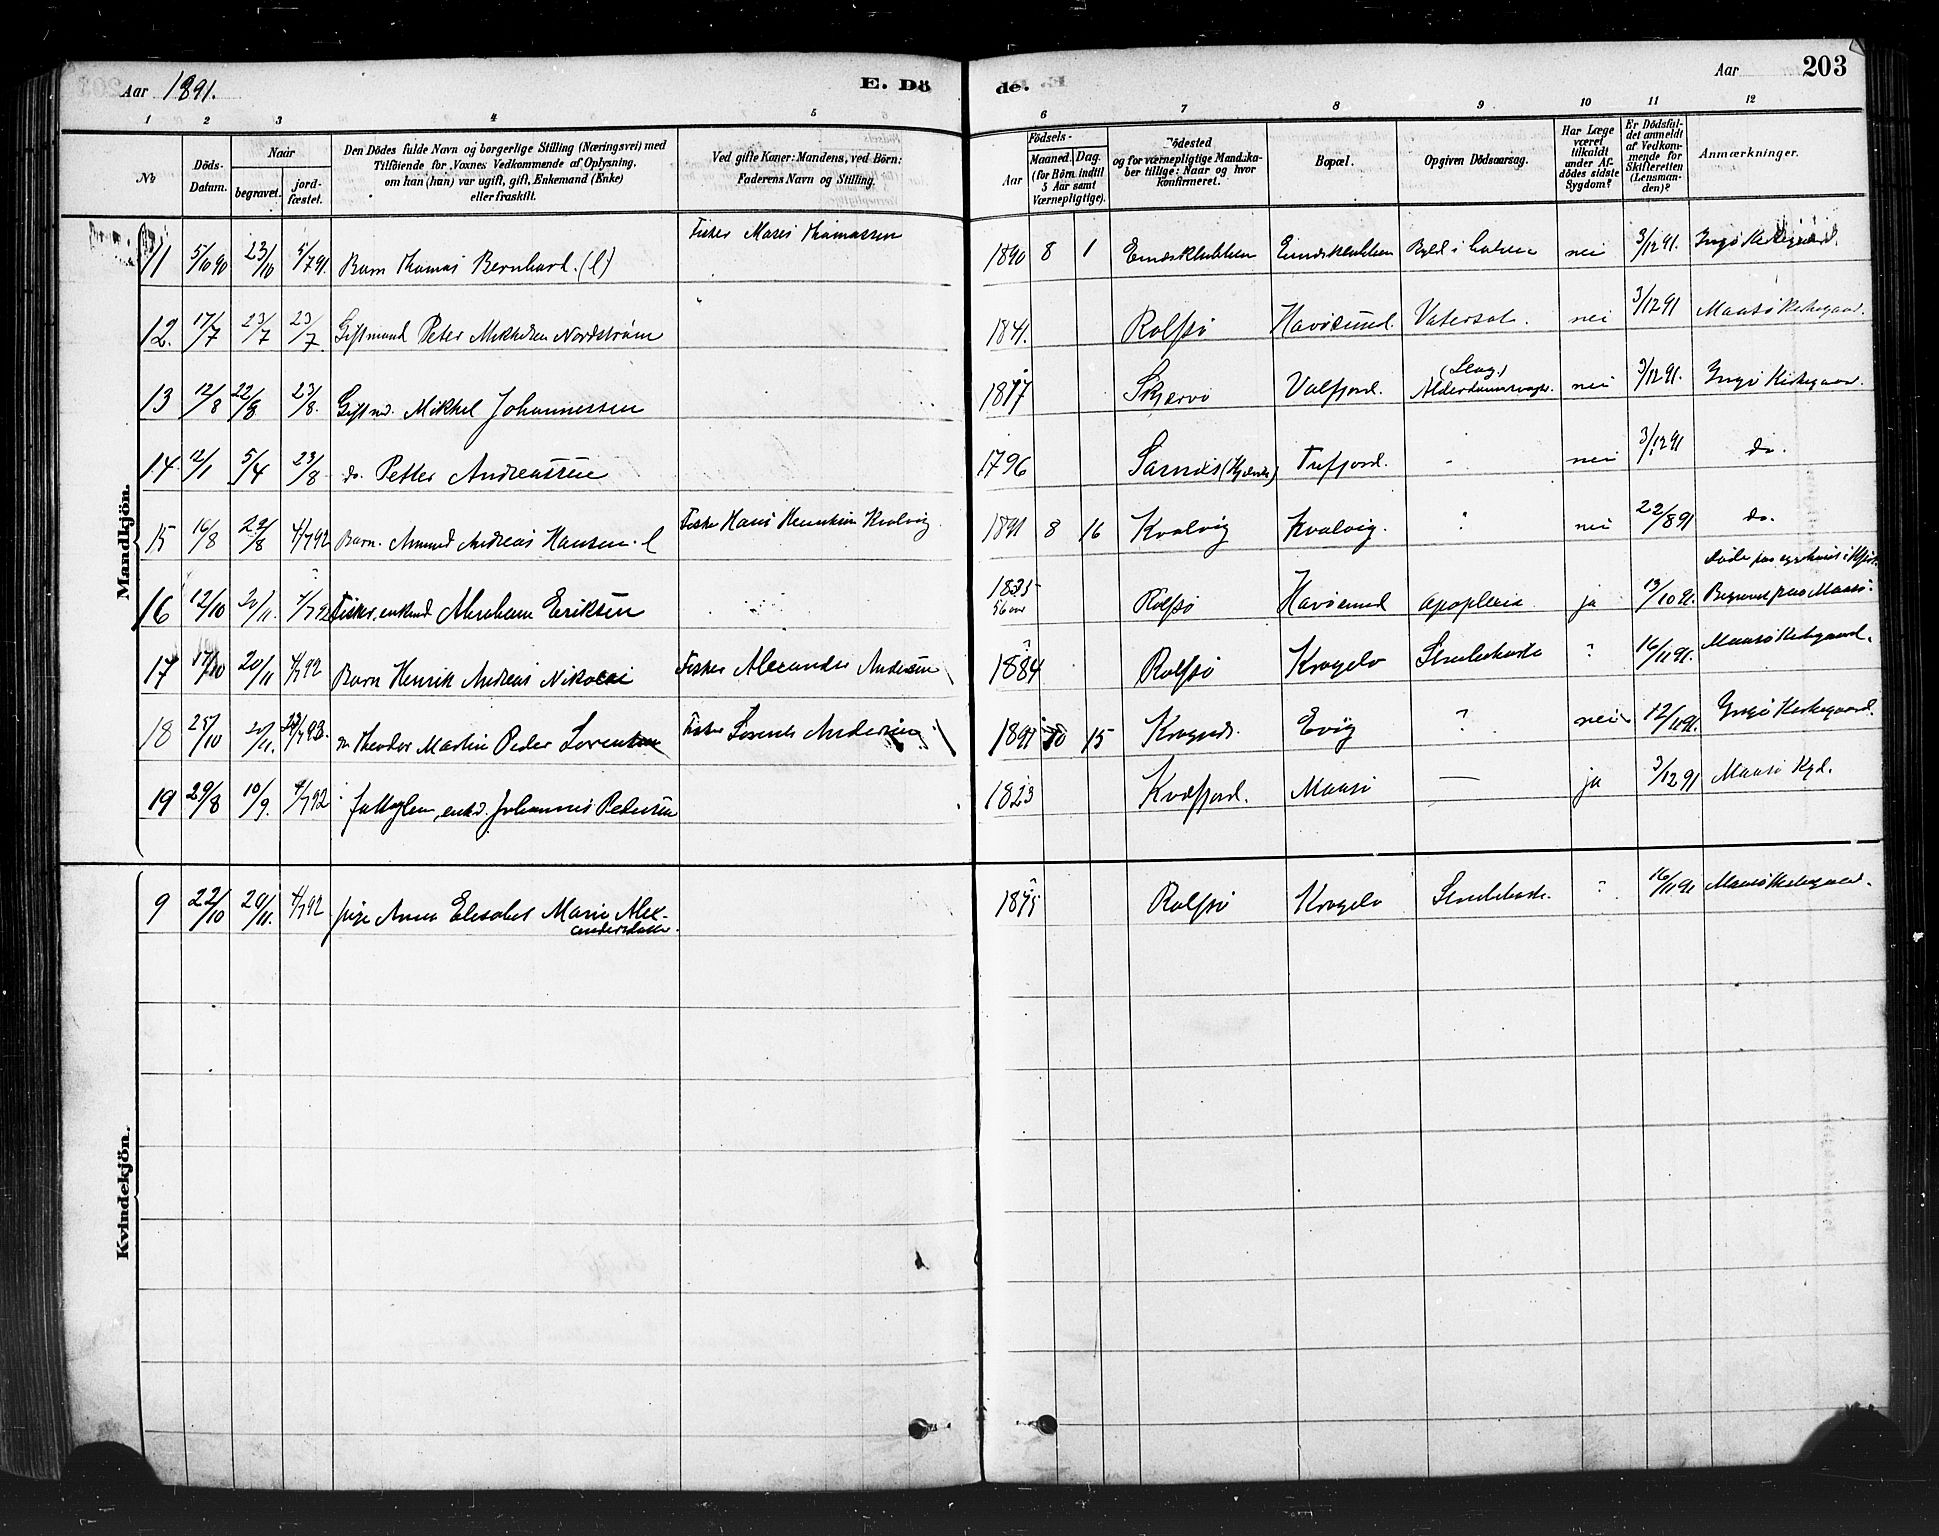 Aar 1891.
E. Dö
de.
Aar
203
1 2 3 4 5 6 7 8 9 10 11 12
No
Döds-Datum.
Naar
begravet.
jordfæstet.
Den Dödes fulde Navn og borgerlige Stilling (Næringsvei) med
Tilföiende for Voxnes Vedkommende af Oplysning,
om han (hun) var ugift, gift, Enkemand (Enke)
eller fraskilt.
Ved gifte Koner: Mandens, ved Börn:
Faderens Navn og Stilling.
Födsels-
Aar
Maaned. Dag.
(for Börn indtil
5 Aar samt
Værnepligtige).
Födested
og for værnepligtige Mandska-
ber tillige: Naar og hvor
konfirmeret.
Bopæl.
Opgiven Dödsaarsag.
Har Læge
været
tilkaldt
under Af-
dödes sidste
Sygdom?
Er Dödsfal-
det anmeldt
af Vedkom-
mende for
Skifteretten
(Lensman-
den)?
Anmærkninger.
Mandkjön.
11 5/10 90 23/10 5/7 91 Barn Thomas Bernhard. (l) Fisker Moses Thomassen 1890 8 1 Byld i nei 3/12 91. Ingø Kirkegaard.
12. 17/7 23/7 23/7 Giftmand Peter Mikkelsen Nordstrøm 1841. Rolfsø Havøsund Vatersot. nei 3/12 91 Maasø Kirkegaard.
13 12/8 22/8 23/8. Giftmd. Mikkel Johannessen 1817 Skjervø Valfjord. (Slag) nei 3/12 91. Ingø Kirkegaard.
14. 12/1 5/4 23/8 do. Petter Andreassen 1796 Tufjord. nei 3/12 91 do.
15 16/8 22/8 4/7 92 Barn. Amund Andreas Hansen. l Fisker Hans Henriksen Kvalvig 1891 8 16 Kvalvig Kvalvig. nei 22/8 91 do.
16 12/10 20/11. 4/7 92 Fisker, enkmd Abraham Eriksen 1835 56 aar Rolfsø Havøsund Apoplexia ja 13/10 91. Begravet paa Maasø.
17 17/10 20/11 4/7 92 Barn Henrik Andreas Nikolai Fisker Alexander Andersen 1884 Rolfsø Krogelv Strubehoste ? 16/11 91. Maasø Kirkegaard.
18 25/10 20/11. Theodor Martin Peder Sorensen Fisker Sorens Andersen 1891 10 15 Evig ? nei 12/11 91. Ingø Kirkegaard.
19 29/8 10/9. 4/7 92 fattiglem, enkd. Johannes Pedersen 1823 Kvæfjord. Maasø — ja 3/12 91 Maasø Kgd.
Kvindekjön.
9 22/10 20/11. 4/7 92 pige Anna Elisabet Marie Alex-
andersdatter. 1875 Rolfsø Krogelv Strubehoste. ? 16/11 91 Maasø Kirkegaard.